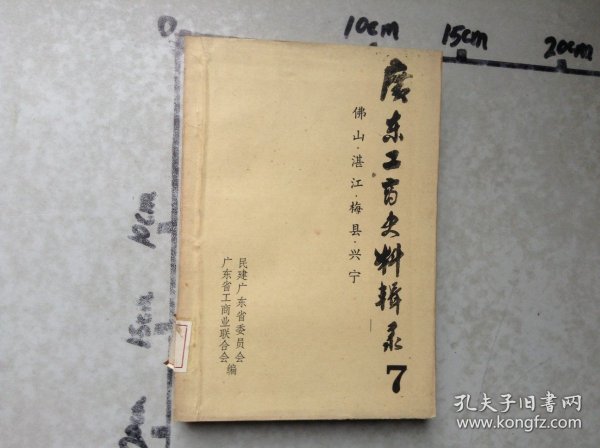 廣东工商史料輯录 7
佛山·湛江·梅县·兴宁
民建广东省委员会
广东省工商业联合会 编
0
10cm
15cm
20cm
10cm
15cm
20cm
孔夫子旧书网
www.kongfz.com